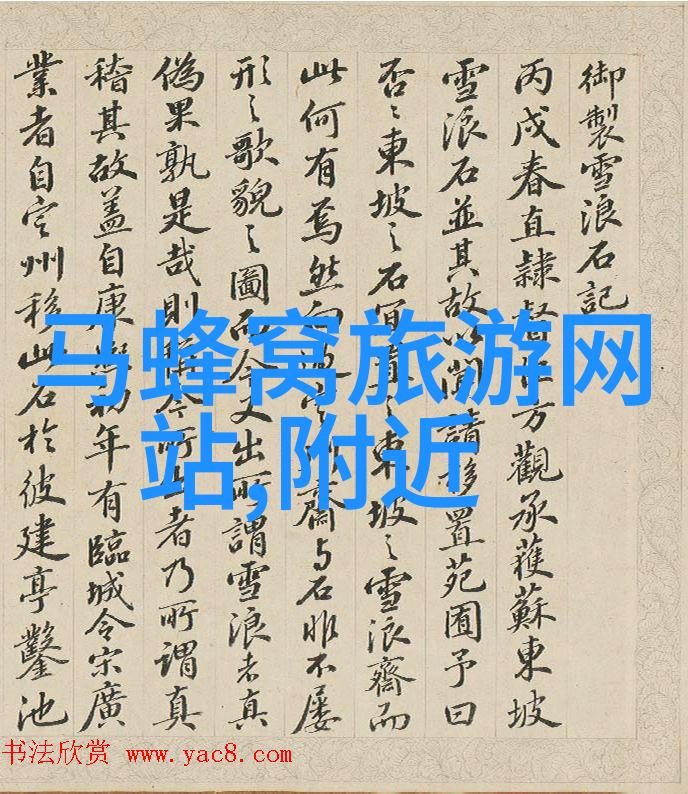 御製雪浪石記
丙戌春直隸督臣方觀承獲蘇東坡
雪浪石並其故以聞請移置苑囿予曰
否〻東坡之石置之東坡之雪浪齋而
此何有焉然向過定州齋與石非不屢
形之歌貌之圖而今又出所謂雪浪者真
偽果孰是哉則今所出者乃所謂真
稽其故蓋自康熙初年有臨城令宋廣
業者自定州移此石於彼建亭鑿池
马蜂窝旅游网
站,附近
书法欣赏 www.yac8.com